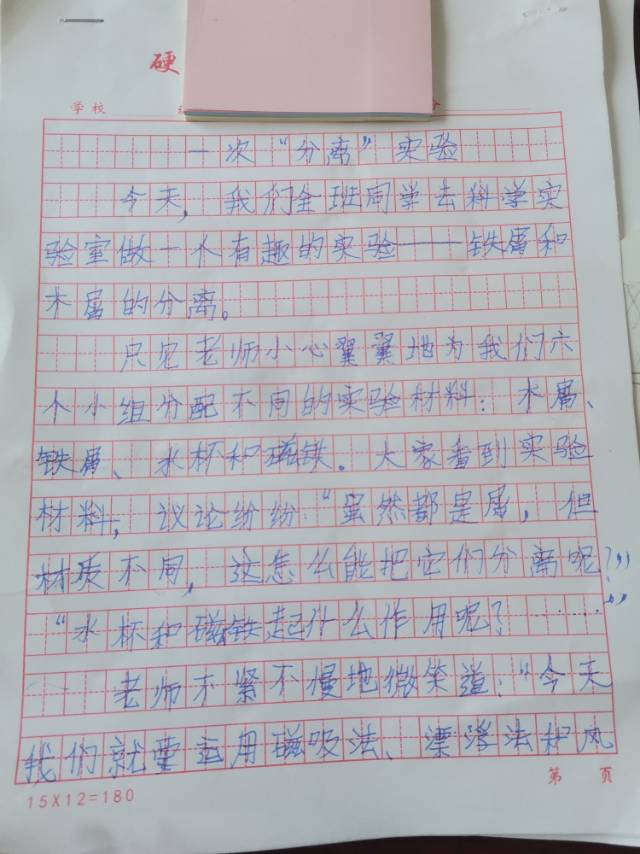 硬
学校
一次“分离”实验
今天，我们全班同学去科学实
验室做一个有趣的实验——铁屑和
木屑的分离。
只见老师小心翼翼地为我们六
个小组分配不同的实验材料：木屑、
铁屑、水杯和磁铁。大家看到实验
材料，议论纷纷：“虽然都是屑，但
材质不同，这怎么能把它们分离呢？”
“水杯和磁铁起什么作用呢？……”
老师不紧不慢地微笑道：“今天
我们就要运用磁吸法、漂浮法和风
第 页
15X12=180